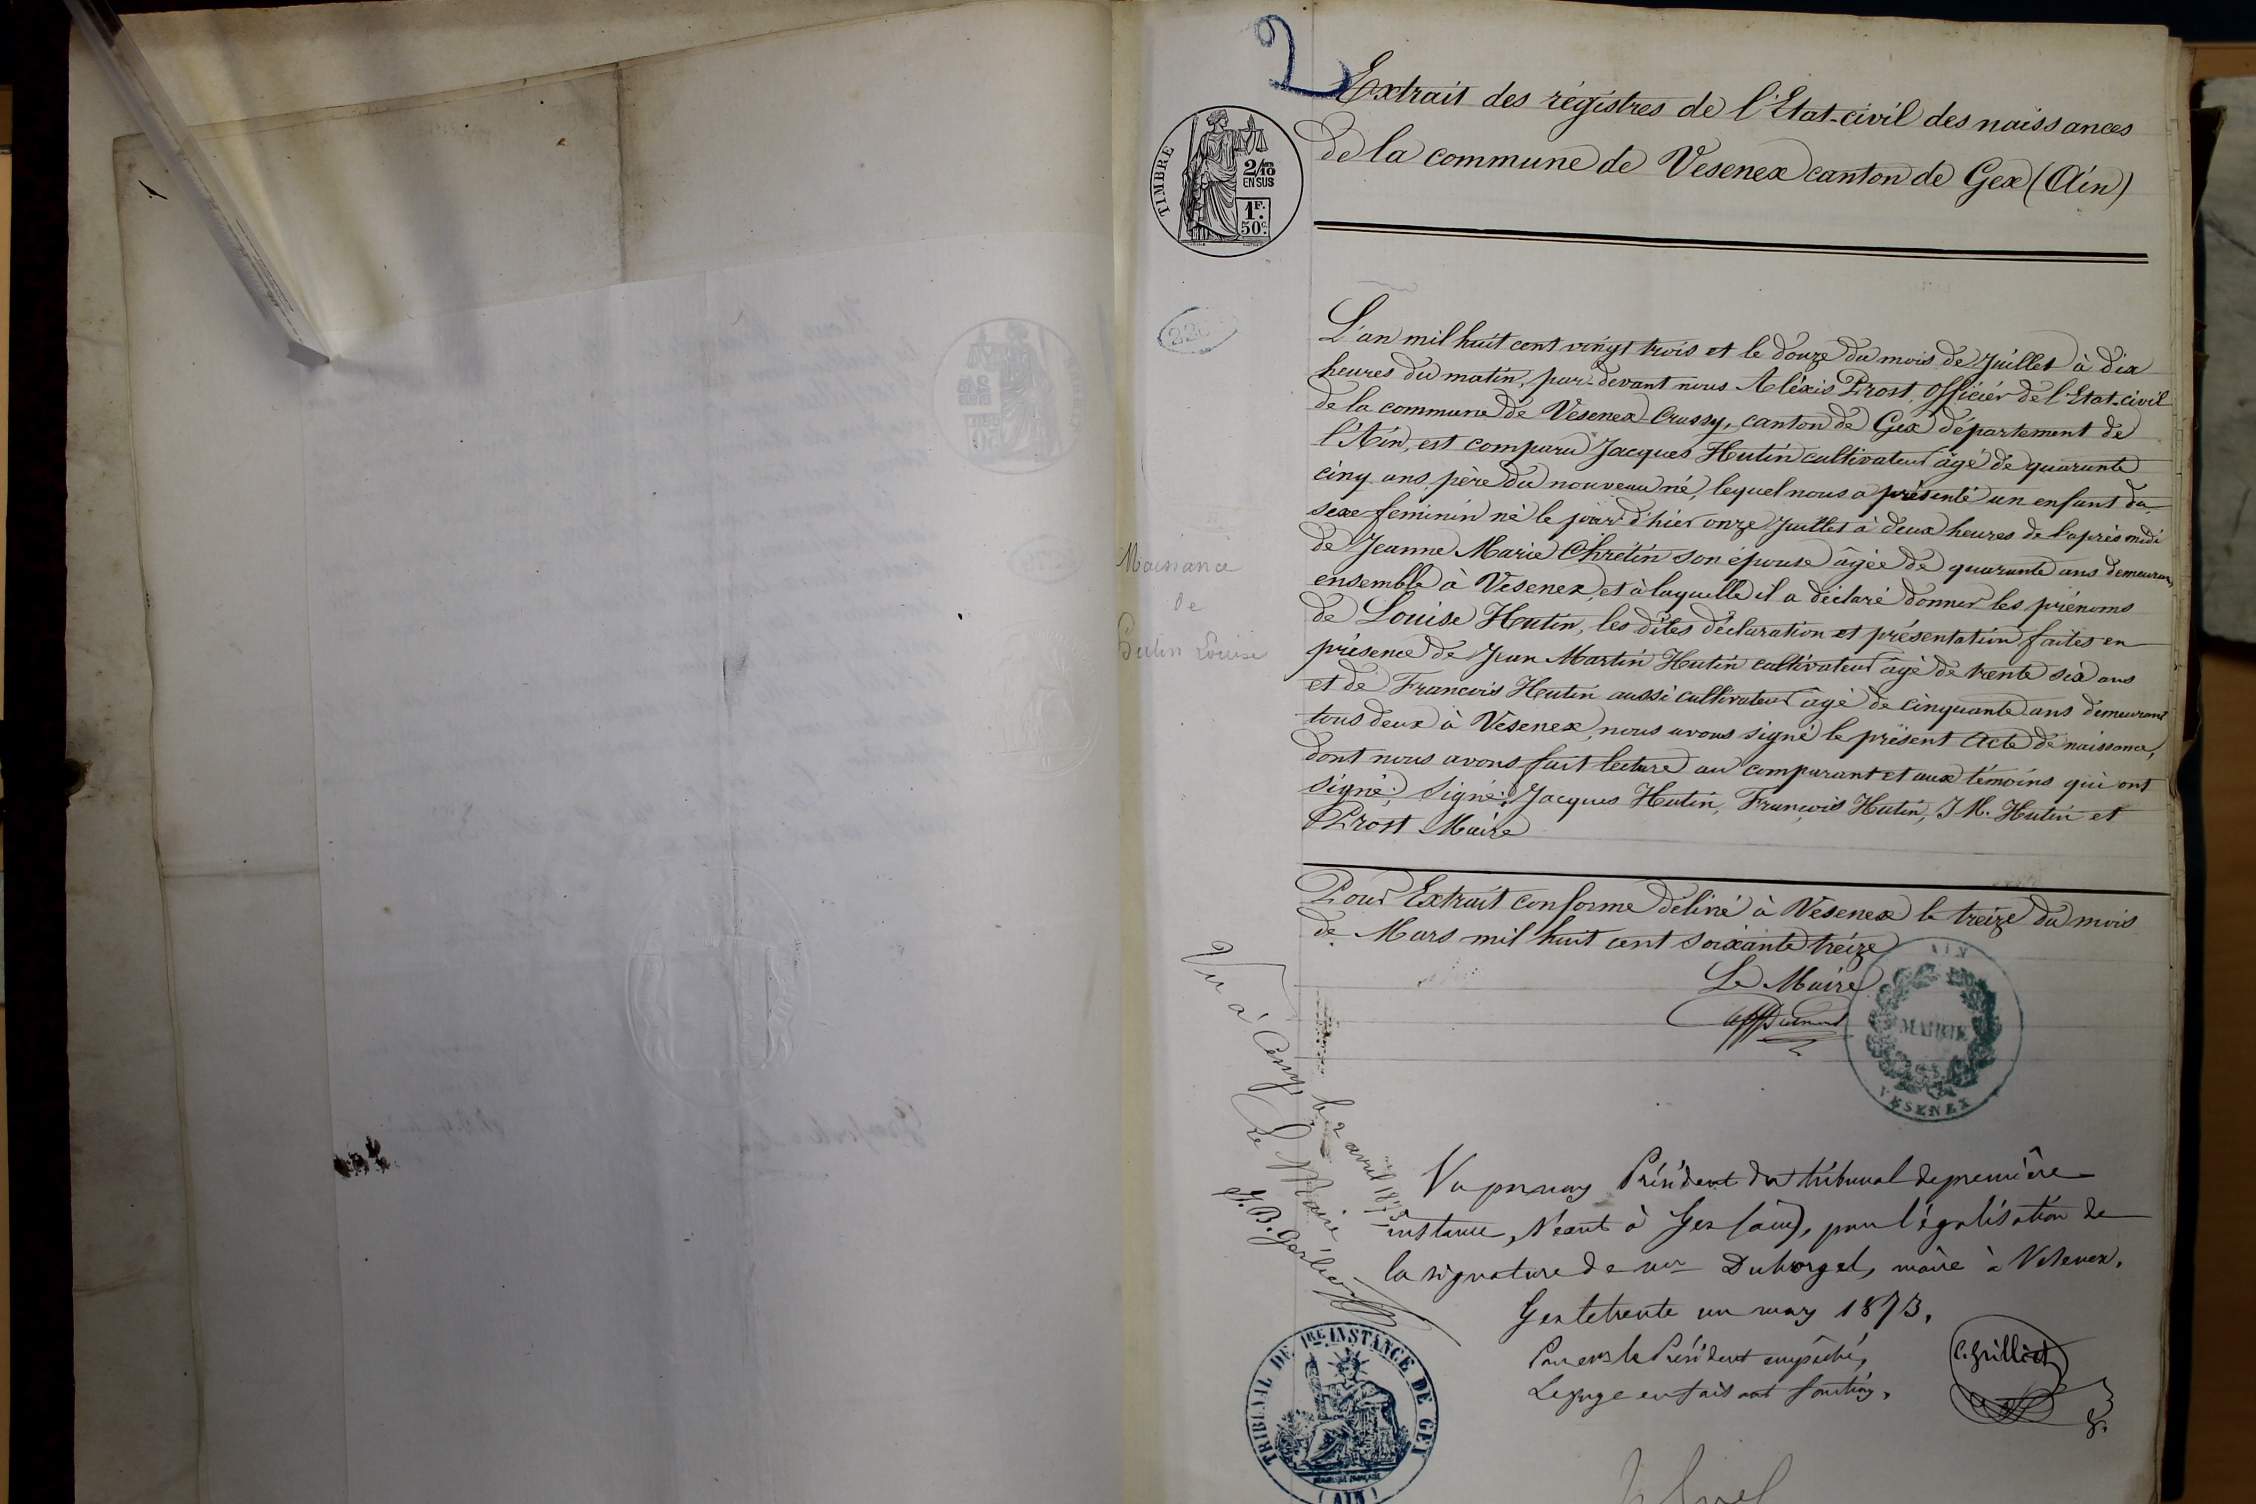 2
Extrait des régistres de l'Etat-civil des naissances
de la commune de Vesenex canton de Gex (Ain)
TIMBRE
2/10 EN SUS
1F. 50c.
L'an mil huit cent vingt trois et le douze du mois de Juillet à dix
heures du matin, par-devant nous Aléxis Prost, officier de l'Etat-civil
de la commune de Vesenex-Crassy, canton de Gex département de
l'Ain, est comparu Jacques Hutin cultivateur âgé de quarante
cinq ans, père du nouveau né, lequel nous a présenté un enfant du
sexe feminin né le jour d'hier onze Juillet à deux heures de l'après midi
de Jeanne Marie Chrétin son épouse âgée de quarante ans demeurans
ensemble à Vesenex, et à laquelle il a déclaré donner les prénoms
de Louise Hutin, les dites déclaration et présentation faites en
présence de Jean Martin Hutin cultivateur âgé de trente six ans
et de Francois Hutin aussi cultivateur âgé de cinquante ans demeurant
tous deux à Vesenex, nous avons signé le présent Acte de naissance,
dont nous avons fait lecture au comparant et aux témoins qui ont
signé; Signé: Jacques Hutin, François Hutin, J M. Hutin et
Prost Maire
Naissance
de
Hutin Louise
Pour Extrait conforme déliné à Vesenex le treize du mois
de Mars mil huit cent soixante treize
Le Maire
AIN
MAIRIE
VESENEX
Vu à le 2 avril 1873
Le Maire
J. B.
Vu par nous Président du tribunal de première
instance, séant à Gex (ain), pour légalisation de
la signature de mr Duborgel, maire à Vesenex.
Gex le trente un mars 1873.
Pour le Président empêché,
Le juge en faisant fonctions.
C. Grilliet
TRIBUNAL DE 1RE INSTANCE DE GEX
(AIN)